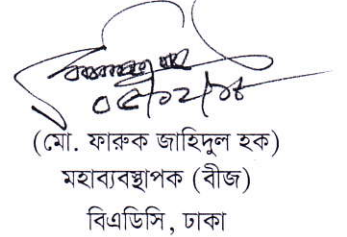 (মো. ফারুক জাহিদুল হক)
মহাব্যবস্থাপক (বীজ)
বিএডিসি, ঢাকা